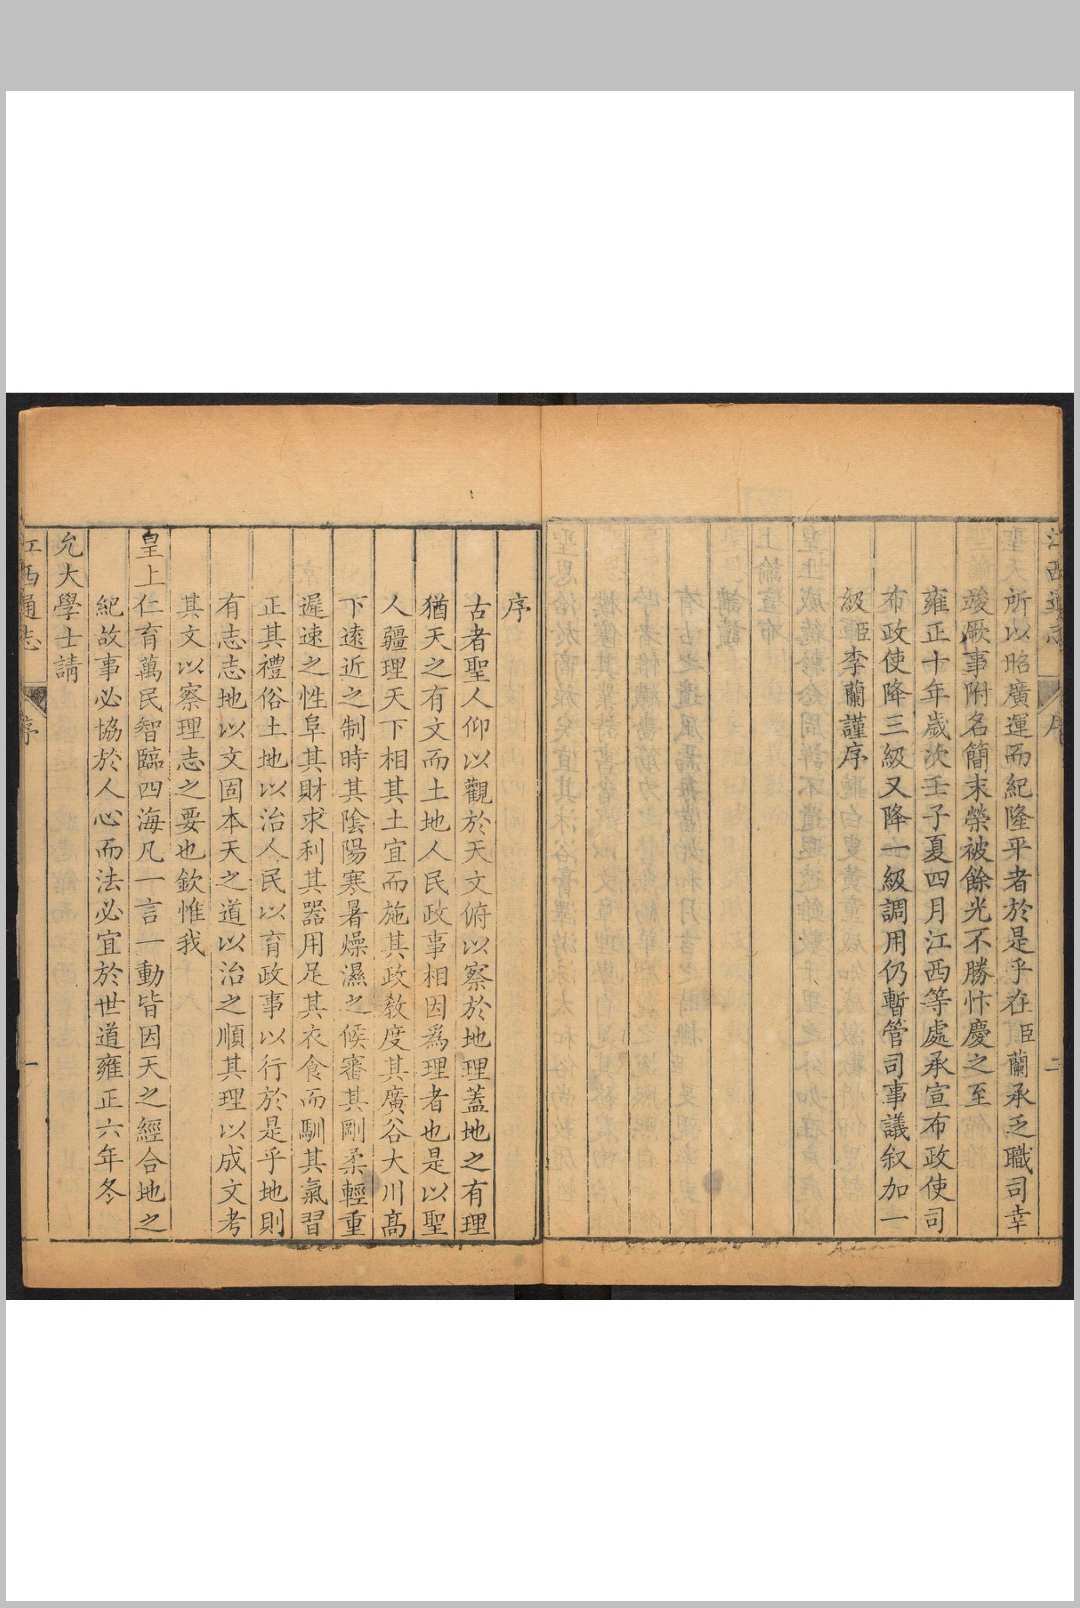 江西通志
序
二
所以昭廣運而紀隆平者於是乎在臣蘭承乏職司幸
竣厥事附名簡末榮被餘光不勝忭慶之至
雍正十年歲次壬子夏四月江西等處承宣布政使司
布政使降三級又降一級調用仍暫管司事議叙加一
級臣李蘭謹序
序
古者聖人仰以觀於天文俯以察於地理蓋地之有理
猶天之有文而土地人民政事相因為理者也是以聖
人疆理天下相其土宜而施其政教度其廣谷大川高
下遠近之制時其陰陽寒暑燥濕之候審其剛柔輕重
遲速之性阜其財求利其器用足其衣食而馴其氣習
正其禮俗土地以治人民以育政事以行於是乎地則
有志志地以文固本天之道以治之順其理以成文考
其文以察理志之要也欽惟我
皇上仁育萬民智臨四海凡一言一動皆因天之經合地之
紀故事必協於人心而法必宜於世道雍正六年冬
允大學士請
江西通志
序
一